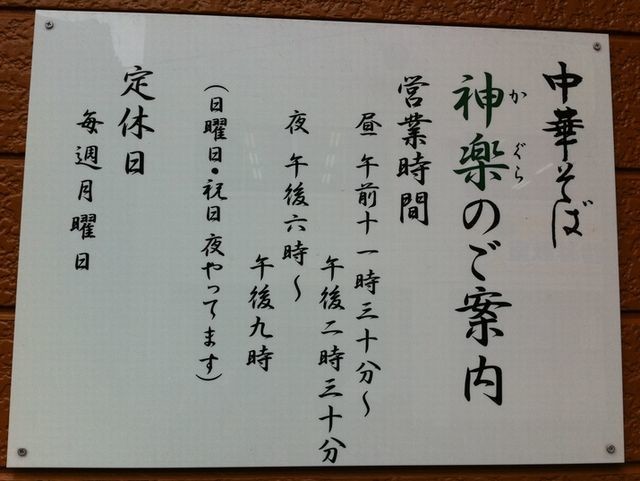 中華そば
神楽のご案内
かぐら
営業時間
昼 午前十一時三十分〜
午後二時三十分
夜 午後六時〜
午後九時
(日曜日・祝日夜やってます)
定休日
毎週月曜日